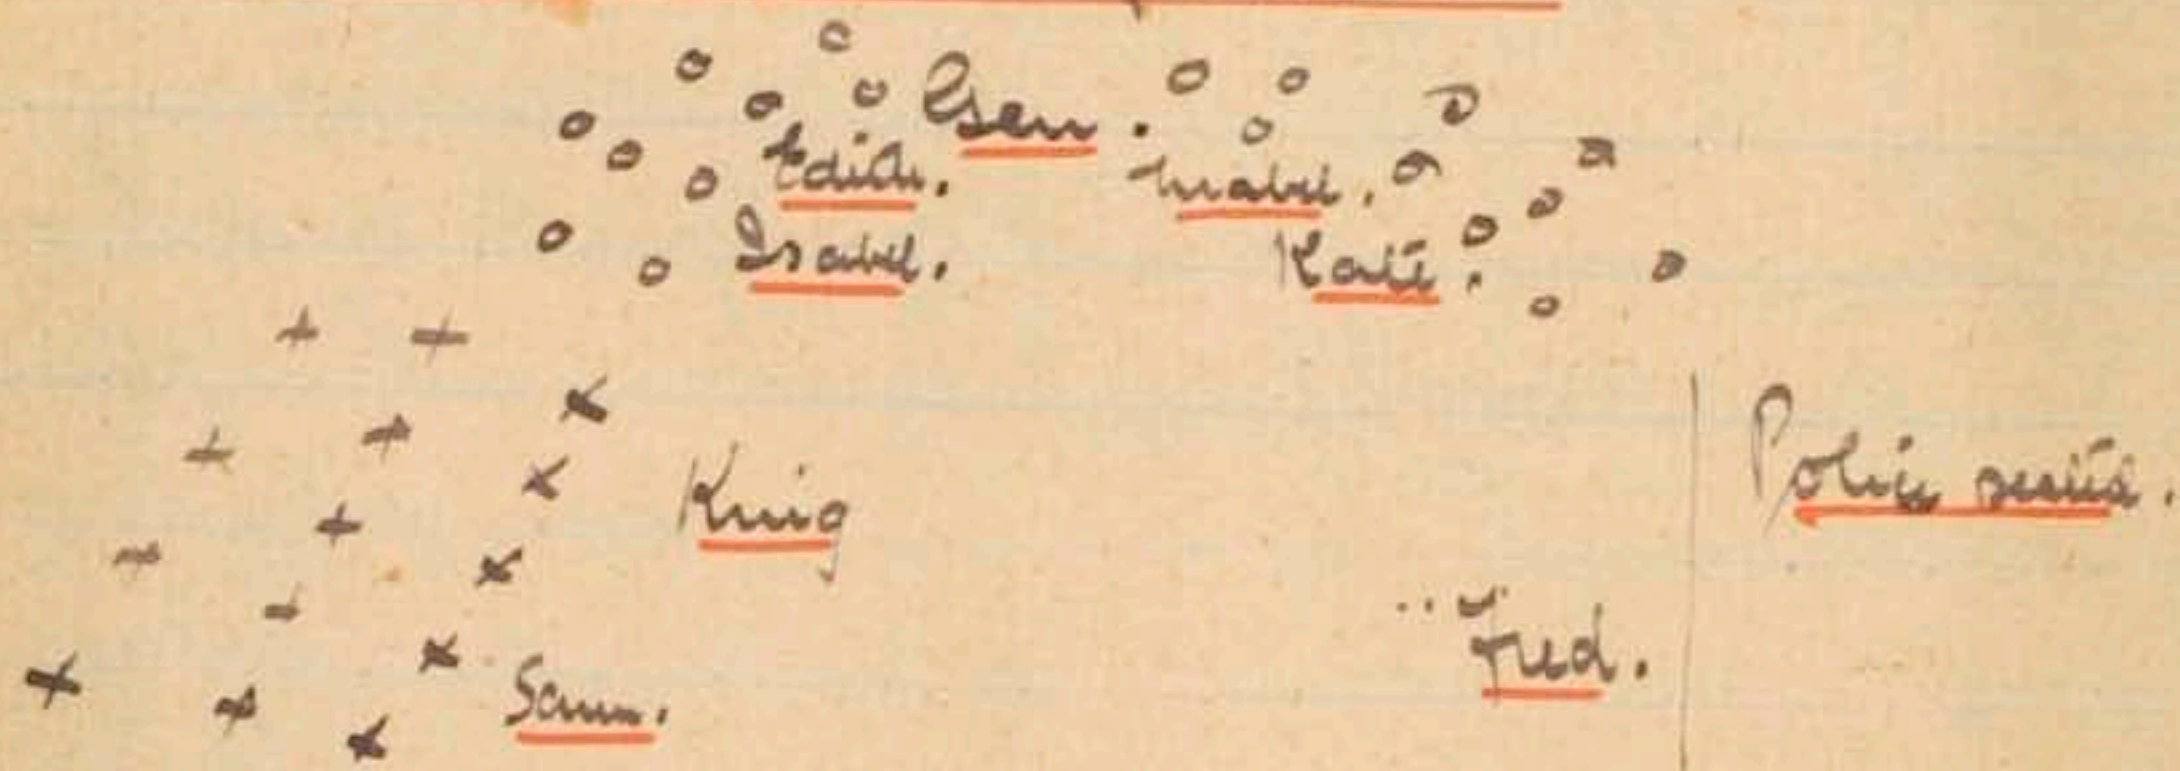 Gen.
Edith. Mabel.
Isabel. Kate.
King
Police
Fred.
Sam.